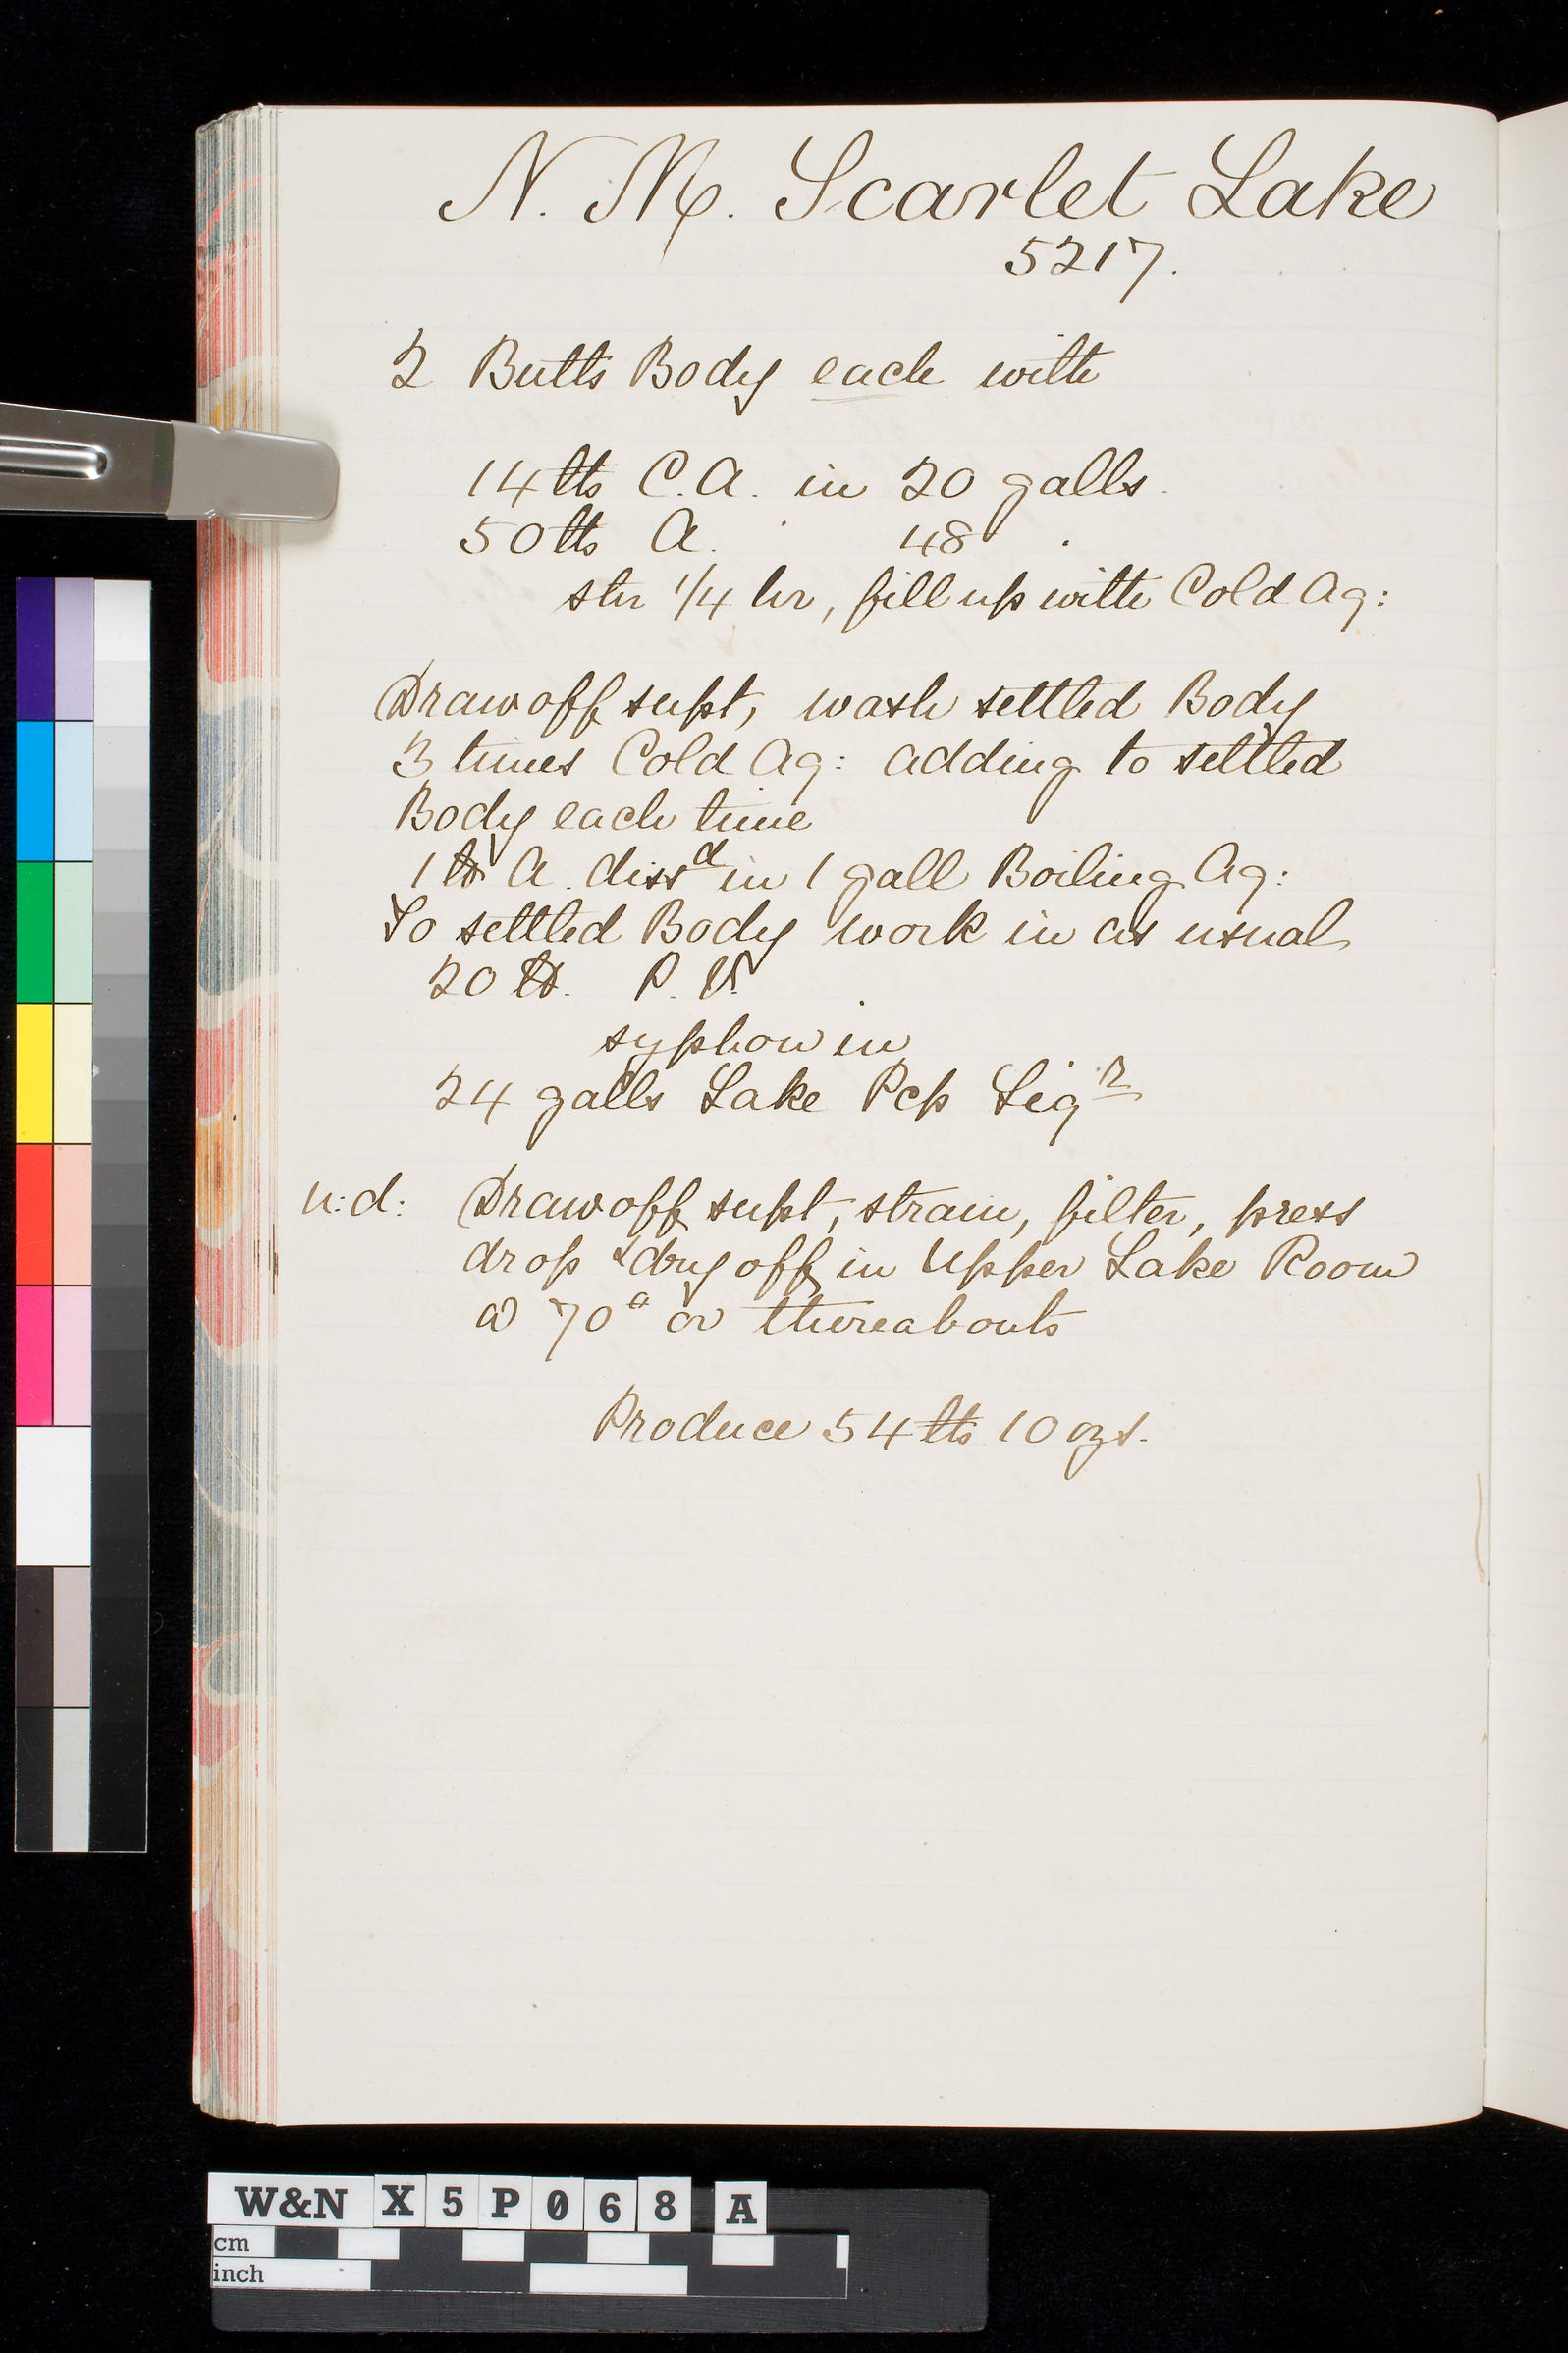 N. M. Scarlet Lake
5217.
2 Butts Body each with
14 lbs C.A. in 20 galls.
50 lbs A. " 48 "
stir 1/4 hr, fill up with Cold Aq:
Draw off supt, wash settled Body
3 times Cold Aq: adding to settled
Body each time
1 lb A. dissd in 1 gall Boiling Aq:
To settled Body work in as usual
20 lb. P. V.
syphon in
24 galls Lake Pcp Liqr
n:d: Draw off supt, strain, filter, press
drop & dry off in Upper Lake Room
@ 70° or thereabouts
Produce 54 lbs 10 ozs.
W&N X5P068 A
cm
inch